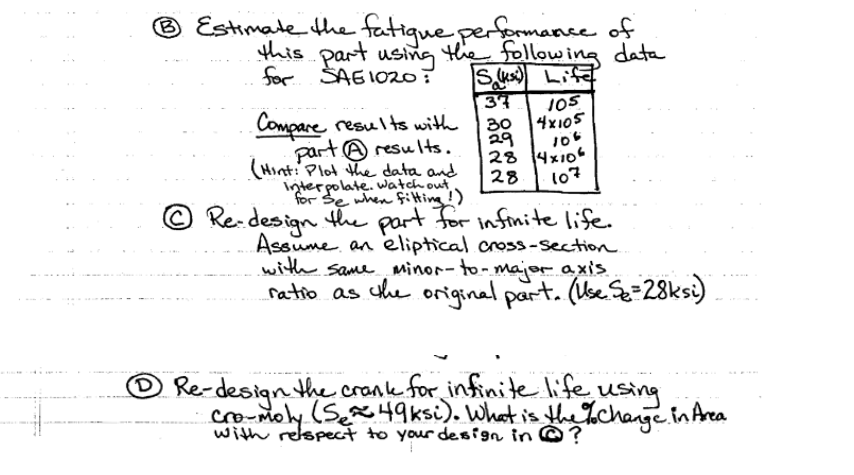 Ⓑ Estimate the fatigue performance of
this part using the following data
for SAE 1020:
Sa(ksi) Life
37 105
30 4x10⁵
29 10⁶
28 4x10⁶
28 10⁷
Compare results with
part Ⓐ results.
(Hint: Plot the data and
interpolate. Watch out
for Se when fitting!)
Ⓒ Re-design the part for infinite life.
Assume an eliptical cross-section
with same minor-to-major axis
ratio as the original part. (Use Se=28ksi)
Ⓓ Re-design the crank for infinite life using
cro-moly (Se≈49ksi). What is the % change in Area
with respect to your design in Ⓒ?